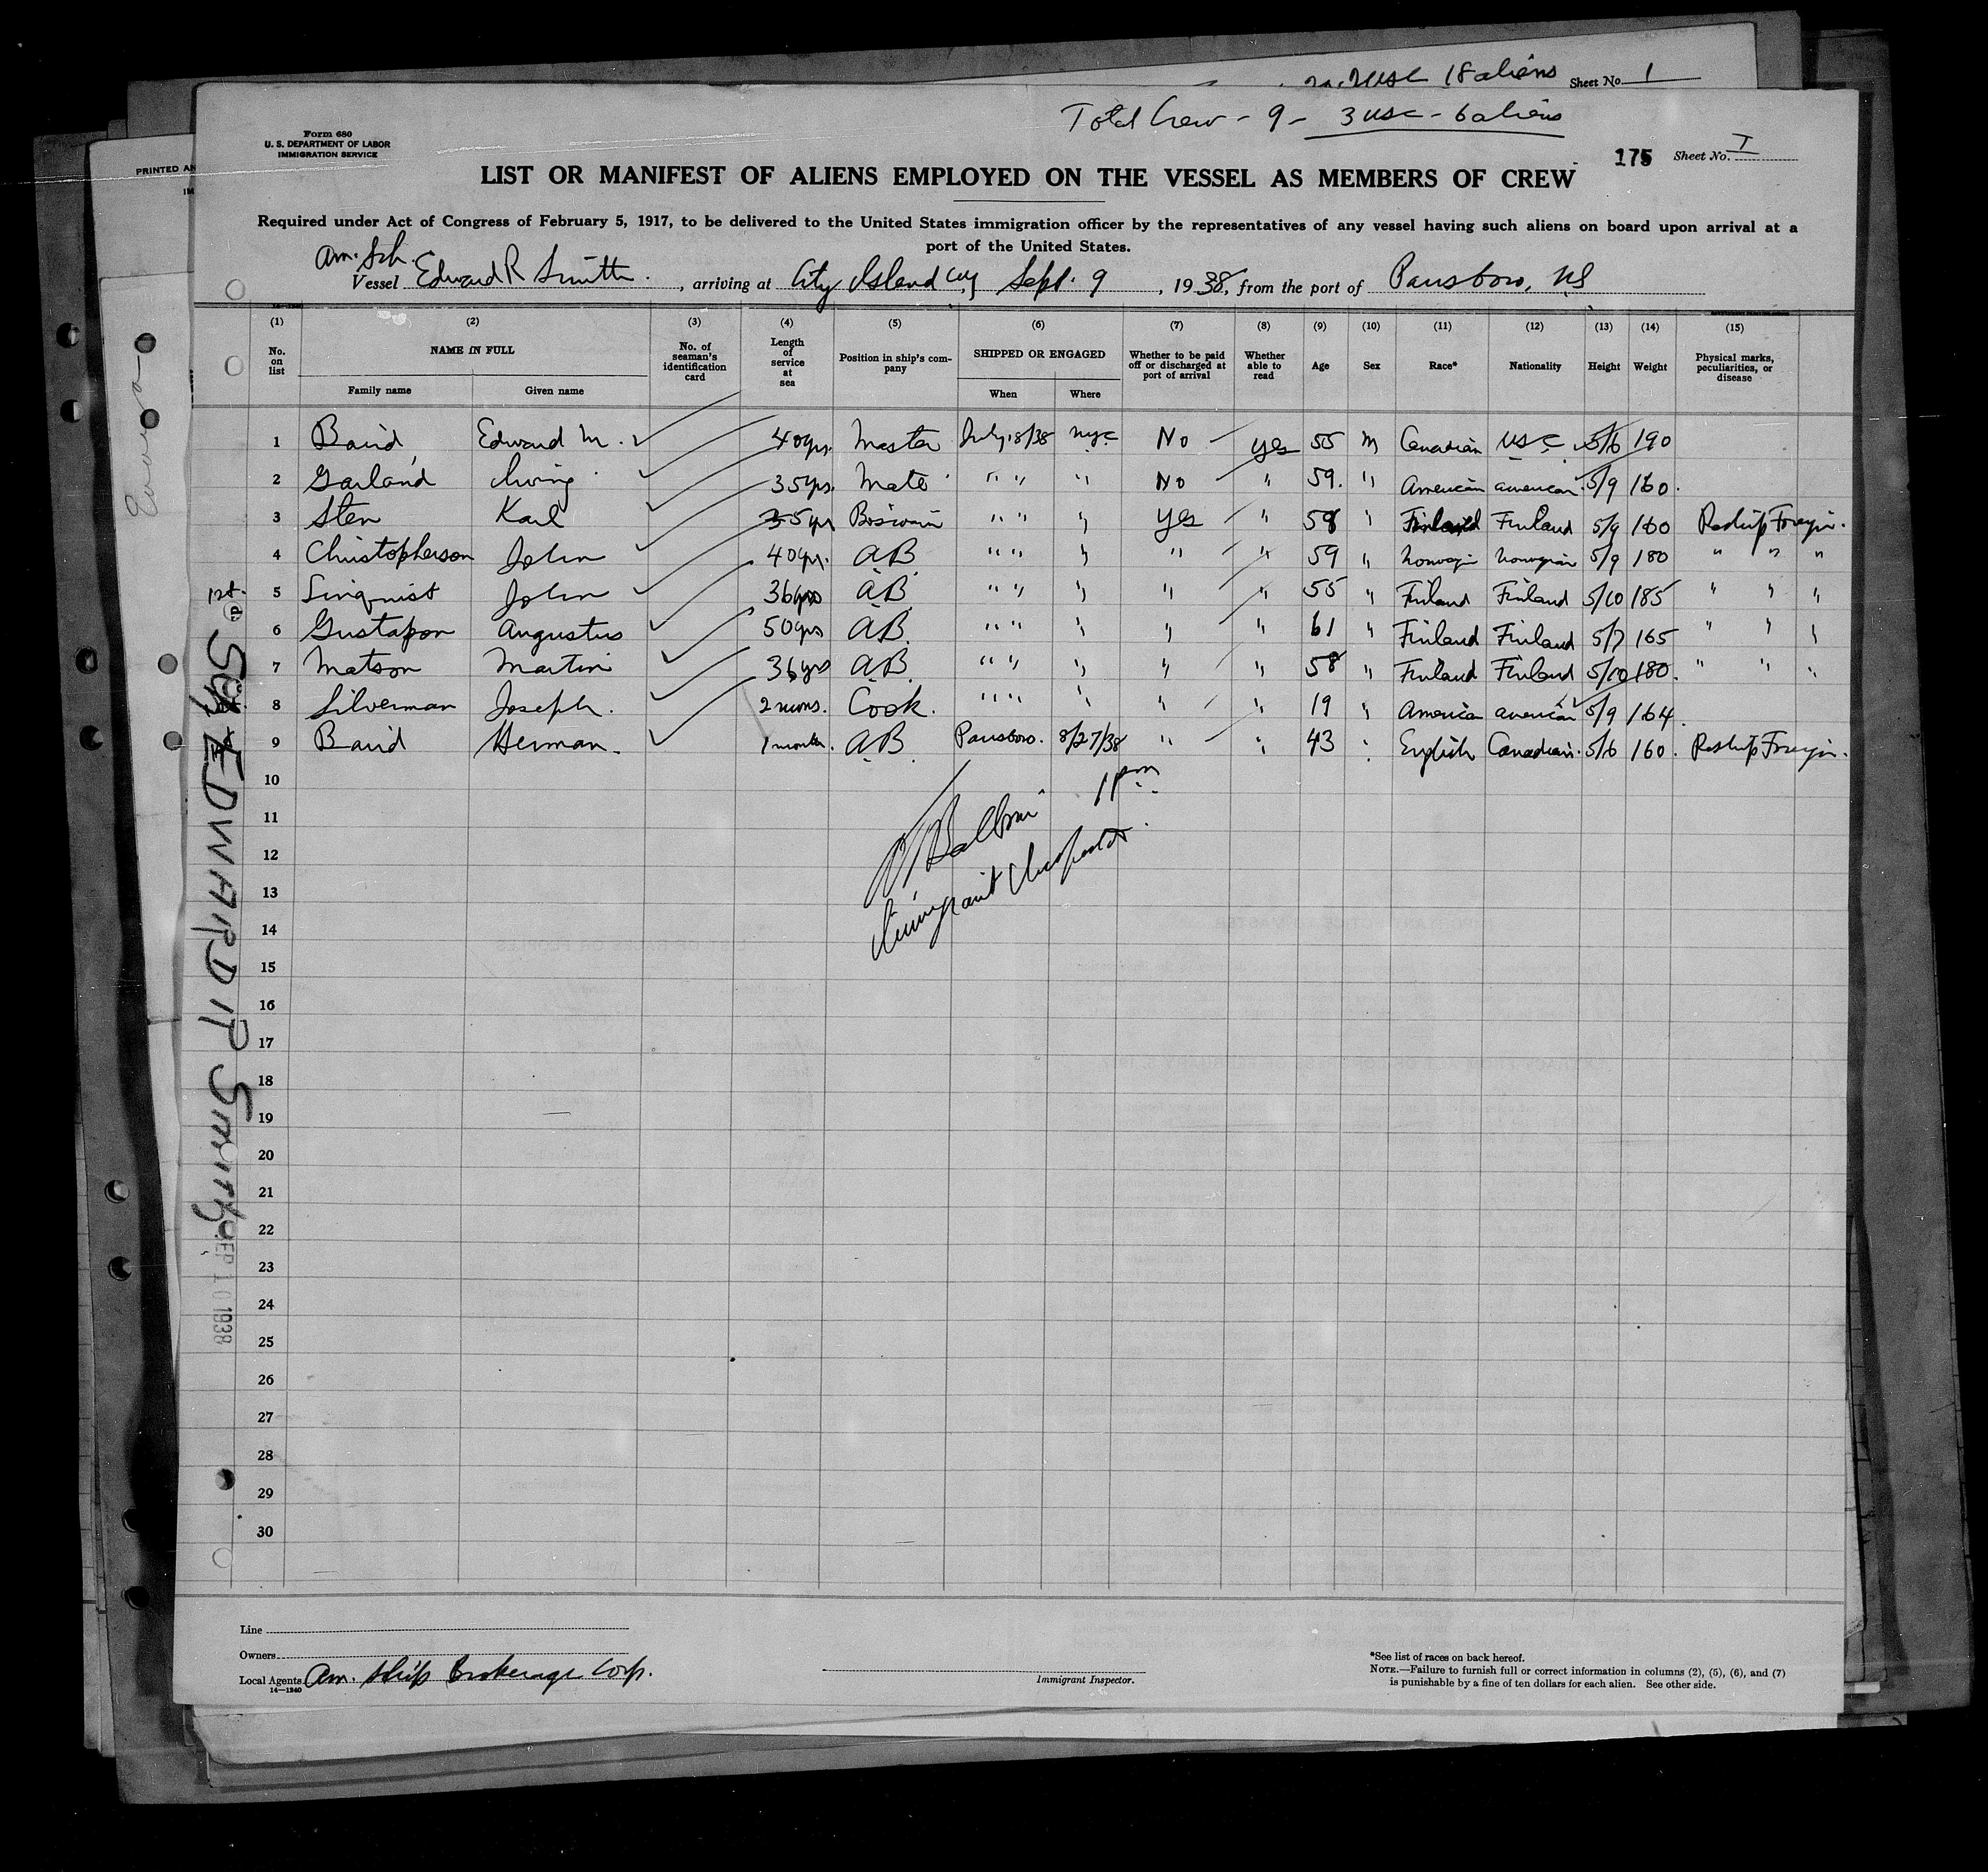 20. 2 USC 18 aliens Sheet No. 1
Total Crew - 9 - 3 USC - 6 aliens
Form 680
U. S. DEPARTMENT OF LABOR
IMMIGRATION SERVICE
PRINTED AN
175 Sheet No. I
LIST OR MANIFEST OF ALIENS EMPLOYED ON THE VESSEL AS MEMBERS OF CREW
Required under Act of Congress of February 5, 1917, to be delivered to the United States immigration officer by the representatives of any vessel having such aliens on board upon arrival at a
port of the United States.
Am. Sch.
Vessel Edward R Smith, arriving at City Island Sept. 9, 1938, from the port of Parrsboro, NS
(1) (2) (3) (4) (5) (6) (7) (8) (9) (10) (11) (12) (13) (14) (15)
No. on list NAME IN FULL No. of seaman's identification card Length of service at sea Position in ship's company SHIPPED OR ENGAGED Whether to be paid off or discharged at port of arrival Whether able to read Age Sex Race* Nationality Height Weight Physical marks, peculiarities, or disease
Family name Given name When Where
1 Baird, Edward M. 40 yrs. Master July 18/38 NYC No yes 55 M Canadian USC 5/6 190
2 Garland Irving 35 yrs. Mate " " " No " 59 " American American 5/9 160
3 Sten Karl 35 yrs Boswain " " " Yes " 58 " Finland Finland 5/9 160 Reship Foreign.
4 Christopherson John 40 yrs. AB " " " " " 59 " Norwegin Norwegian 5/9 180 " " "
5 Sinquist John 36 yrs AB " " " " " 55 " Finland Finland 5/10 185 " " "
6 Gustafson Augustus 50 yrs AB " " " " " 61 " Finland Finland 5/7 165 " " "
7 Matson Martin 36 yrs AB " " " " " 58 " Finland Finland 5/10 180. " " "
8 Silverman Joseph. 2 mons. Cook. " " " " " 19 " America American 5/9 164.
9 Baird Herman. 1 month. AB Parrsboro. 8/27/38 " " 43 " English Canadian. 5/6 160. Reship Foreign.
10
11
12
13
14
15
16
17
18
19
20
21
22
23
24
25
26
27
28
29
30
1 pm
Immigrant Inspector
EDWARD R SMITH
SEP 10 1938
Line
Owners
Local Agents Am. Ship Brokerage Corp.
14—1240
Immigrant Inspector.
*See list of races on back hereof.
NOTE.—Failure to furnish full or correct information in columns (2), (5), (6), and (7)
is punishable by a fine of ten dollars for each alien. See other side.